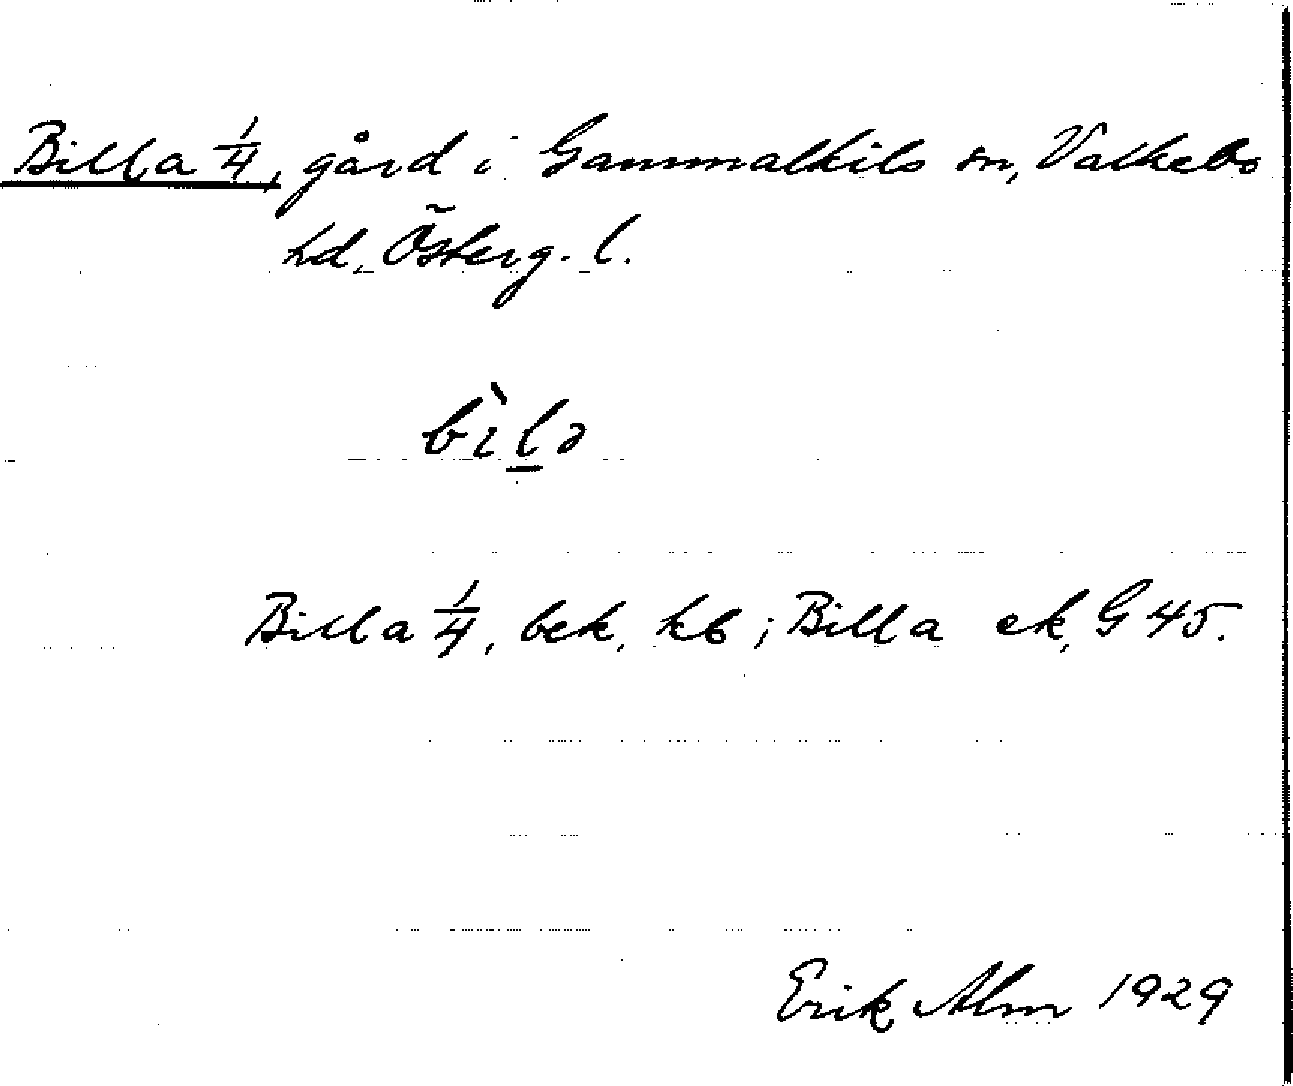 Billa 1/4, gård i Gammalkils sn, Valkebo
hd, Österg. l.
bìl̲a
Billa 1/4, bek. kb; Billa ek, G 45.
Erik Alm 1929